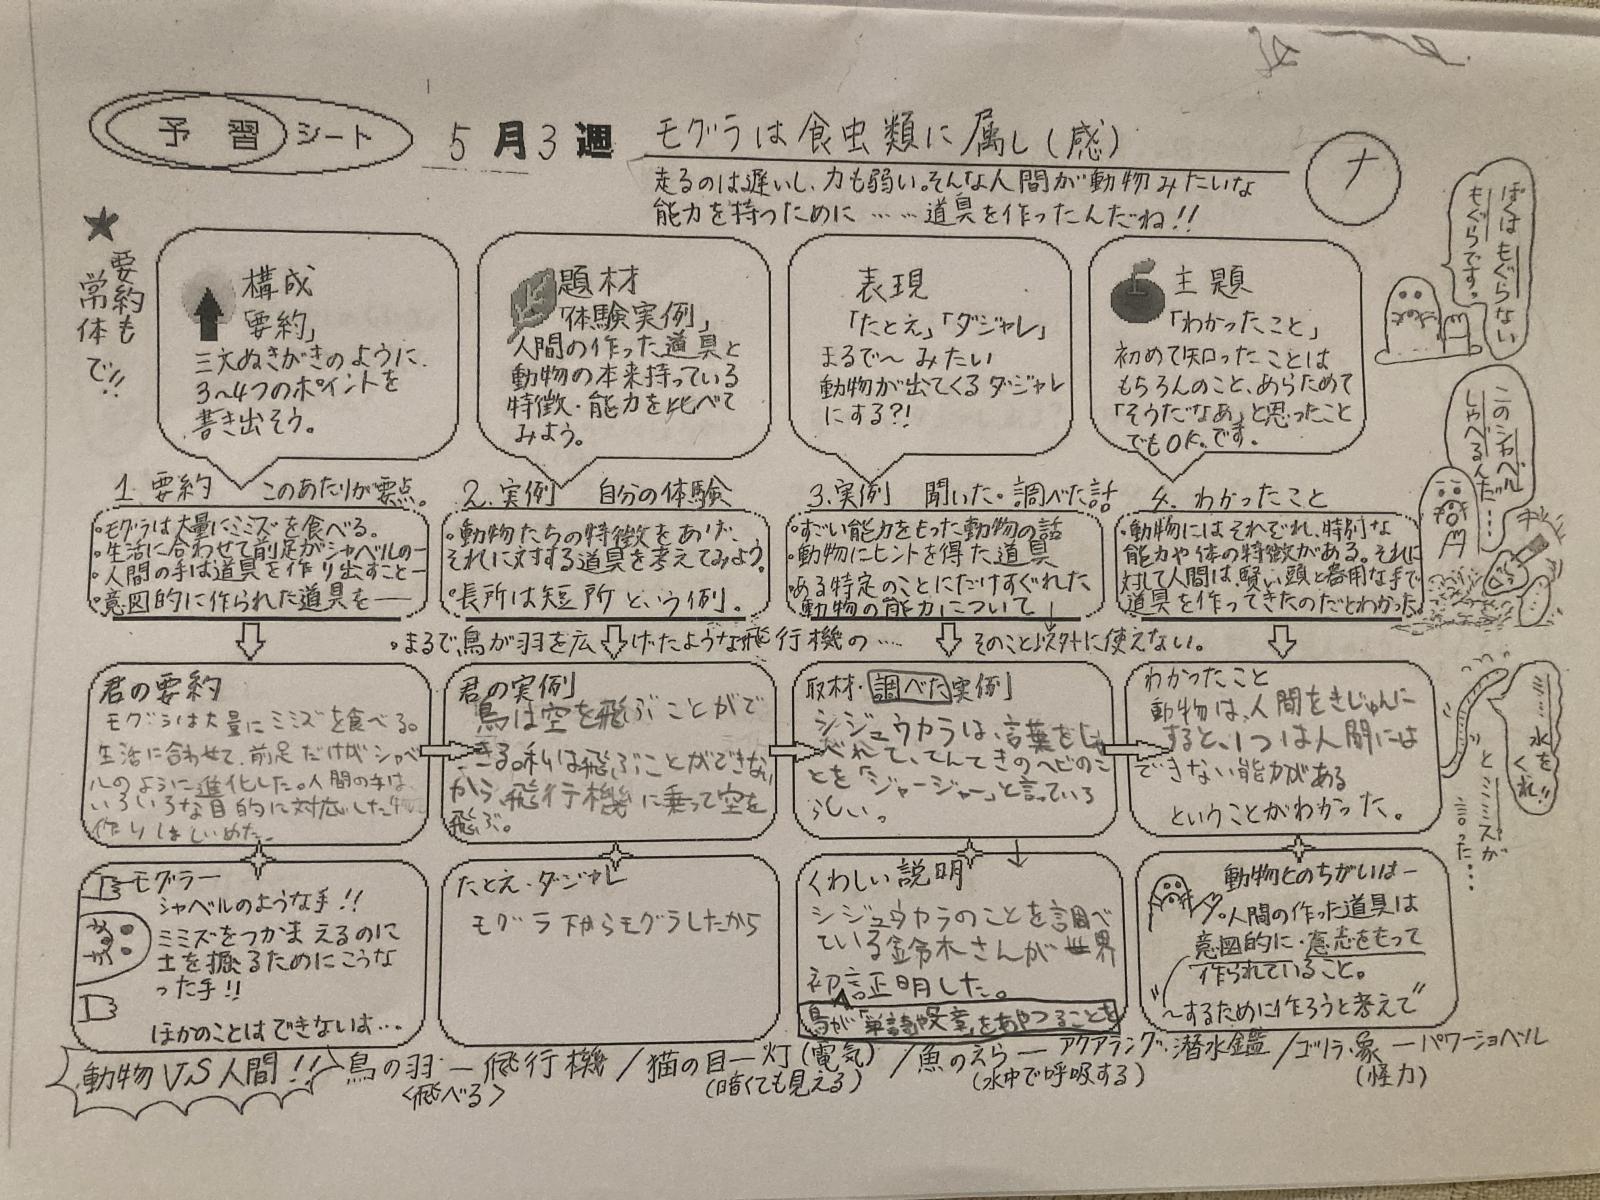 予習シート
5月3週
モグラは食虫類に属し(感)
ナ
走るのは遅いし、力も弱い。そんな人間が動物みたいな
能力を持つために……道具を作ったんだね!!
★要約も
常体で!!
構成
「要約」
三文ぬきがきのように、
3〜4つのポイントを
書き出そう。
題材
「体験実例」
人間の作った道具と
動物の本来持っている
特徴・能力を比べて
みよう。
表現
「たとえ」「ダジャレ」
まるで〜みたい
動物が出てくるダジャレ
にする?!
主題
「わかったこと」
初めて知ったことは
もちろんのこと、あらためて
「そうだなあ」と思ったこと
でもOK。です。
ぼくはもぐらない
もぐらです。
このシャベル
しゃべるんだ…
1. 要約 このあたりが要点。
・モグラは大量にミミズを食べる。
・生活に合わせて前足がシャベルの―
・人間の手は道具を作り出すこと―
・意図的に作られた道具を――
2. 実例 自分の体験
・動物たちの特徴をあげ、
それに対する道具を考えてみよう。
・長所は短所という例。
3. 実例 聞いた・調べた話
・すごい能力をもった動物の話
・動物にヒントを得た道具
・ある特定のことにだけすぐれた
動物の能力について
4. わかったこと
・動物にはそれぞれ、特別な
能力や体の特徴がある。それに
対して人間は、賢い頭と器用な手で
道具を作ってきたのだとわかった。
・まるで、鳥が羽を広げたような飛行機の……
そのこと以外に使えない。
君の要約
モグラは大量にミミズを食べる。
生活に合わせて、前足だけがシャベ
ルのように進化した。人間の手は、
いろいろな目的に対応した物
作りはじめた。
君の実例」
鳥は空を飛ぶことがで
きる。私は飛ぶことができない
から、飛行機に乗って空を
飛ぶ。
取材・調べた実例」
シジュウカラは、言葉をしゃ
べれて、てんてきのヘビのこ
とを「ジャージャー」と言っている
らしい。
わかったこと
動物は、人間をきじゅんに
すると、1つは人間には
できない能力がある
ということがわかった。
水を
くれ!!
とミミズが
言った…
モグラー
シャベルのような手!!
ミミズをつかまえるのに
土を掘るためにこうな
った手!!
ほかのことはできないす…
たとえ・ダジャレ
モグラ下からモグラしたから
くわしい説明
シジュウカラのことを調べ
ている鈴木さんが世界
初証明した。
鳥が「単語や文章」をあやつることを
動物とのちがいは―
・人間の作った道具は
意図的に・意志をもって
作られていること。
"〜するために作ろうと考えて"
動物VS人間!!
鳥の羽―飛行機/猫の目―灯(電気)/魚のえら―アクアラング・潜水鑑/ゴリラ、象―パワーショベル
<飛べる>
(暗くても見える)
(水中で呼吸する)
(怪力)